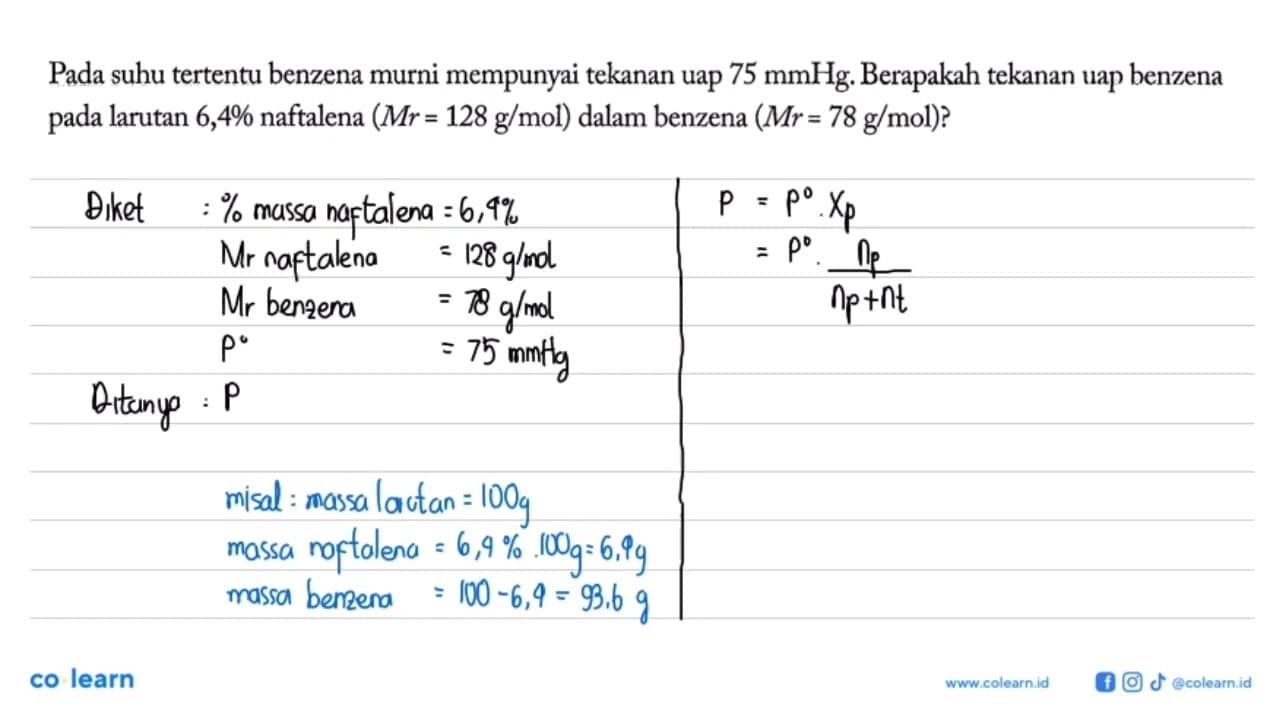 Pada suhu tertentu benzena murni mempunyai tekanan uap 75 mmHg. Berapakah tekanan uap benzena
pada larutan 6,4% naftalena (Mr = 128 g/mol) dalam benzena (Mr = 78 g/mol)?
Diket : % massa naftalena = 6,4%
Mr naftalena = 128 g/mol
Mr benzena = 78 g/mol
P° = 75 mmHg
Ditanya : P
misal : massa larutan = 100g
massa naftalena = 6,4% . 100g = 6,4g
massa benzena = 100 - 6,4 = 93,6 g
P = P° . Xp
= P° . np
np + nt
co learn
www.colearn.id
@colearn.id